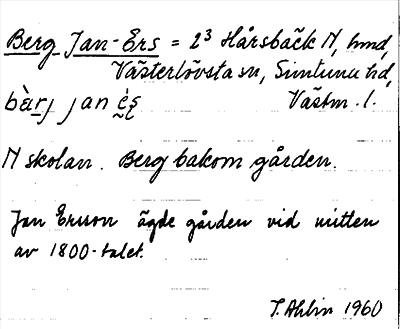 Berg Jan-Ers = 2³ Hårsbäck N, hmd,
Västerlövsta sn, Simtuna hd,
bàrj jan è̱ʂ Västm. l.
N skolan. Berg bakom gården.
Jan Ersson ägde gården vid mitten
av 1800-talet.
T. Ahlin 1960